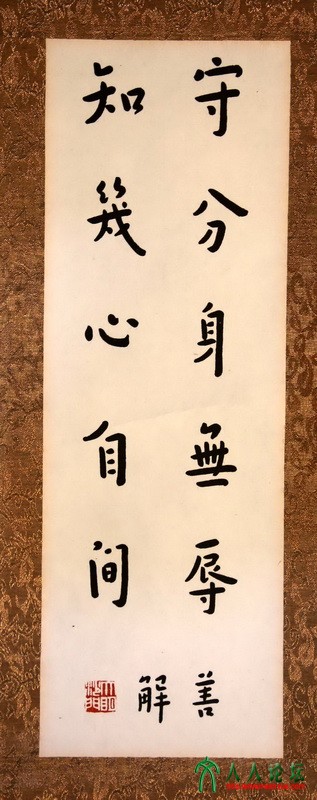 守分身無辱
知幾心自间
善
解
人人论坛